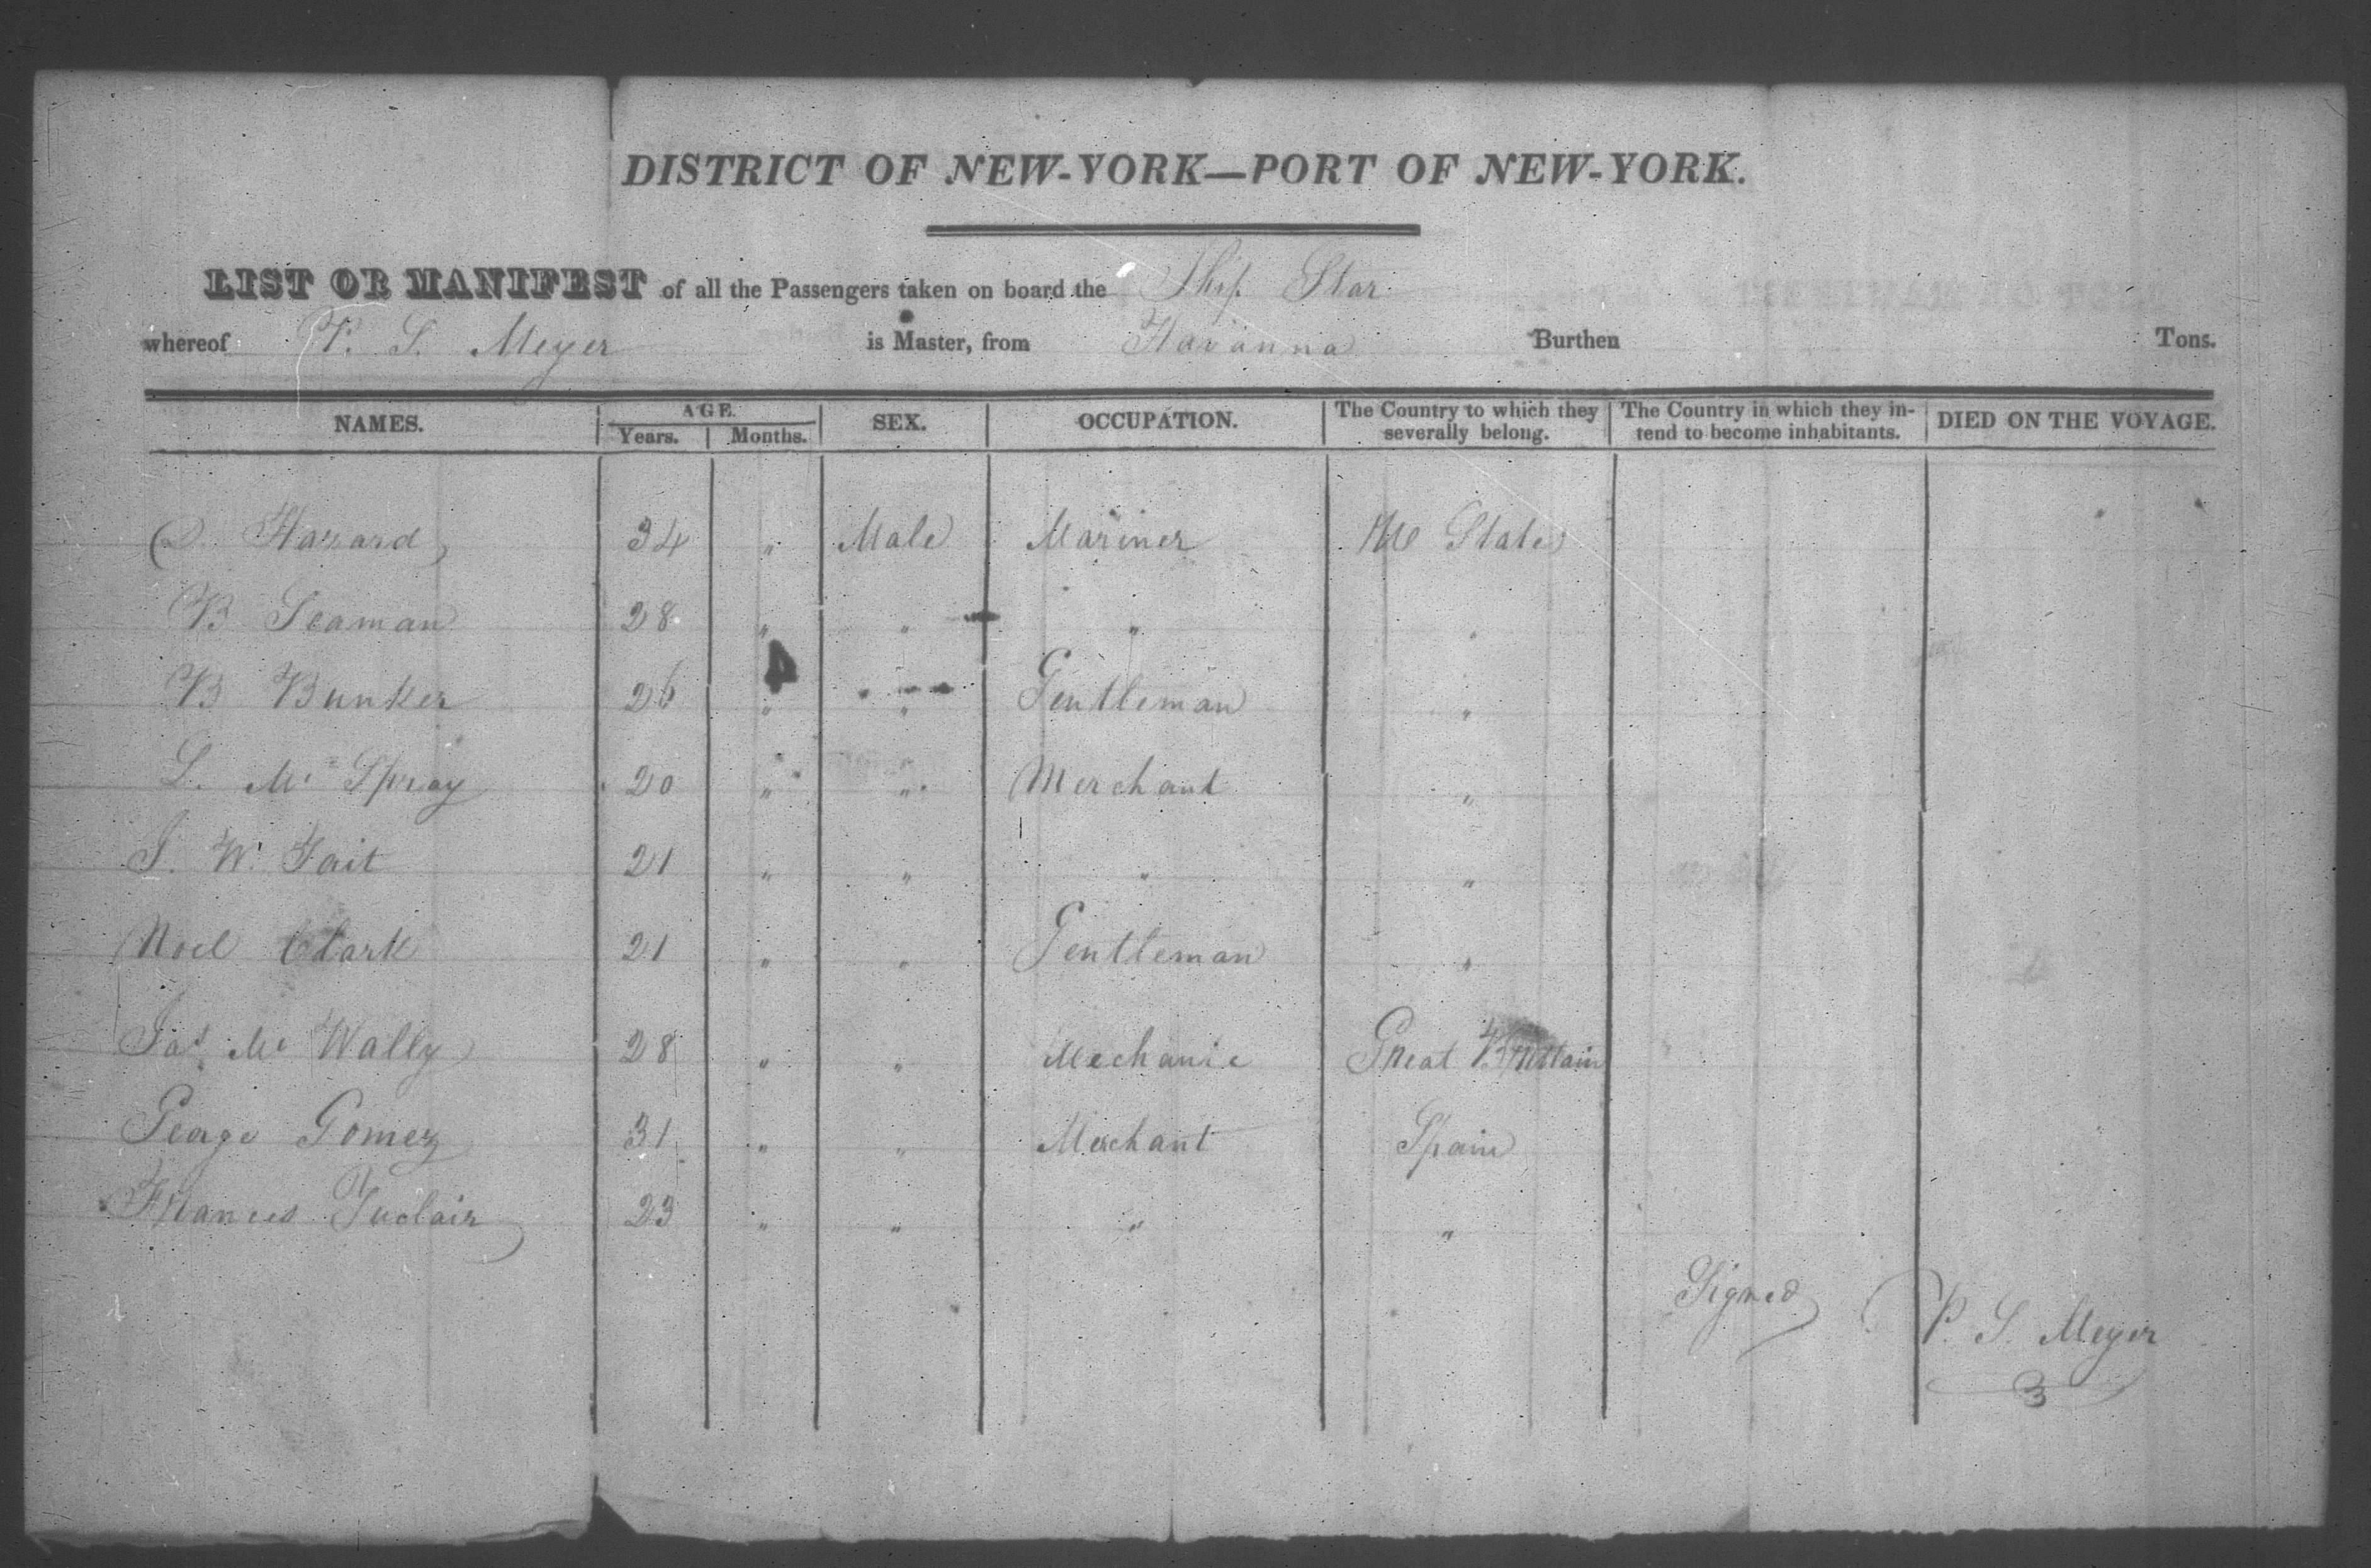 DISTRICT OF NEW-YORK—PORT OF NEW-YORK.
LIST OR MANIFEST of all the Passengers taken on board the Ship Star
whereof P. S. Meyer is Master, from Havanna Burthen Tons.
NAMES. AGE. Years. Months. SEX. OCCUPATION. The Country to which they severally belong. The Country in which they intend to become inhabitants. DIED ON THE VOYAGE.
Hazard 34 " Male Mariner States
B Seaman 28 " " " "
B Bunker 26 " " Gentleman "
L. Mc Spray 20 " " Merchant "
J. W. Tait 21 " " " "
Noel Clark 21 " " Gentleman "
Jas Mc Wally 28 " " Mechanic Great Brittain
George Gomez 31 " " Merchant Spain
Frances 23 " " " "
Signed P. S. Meyer